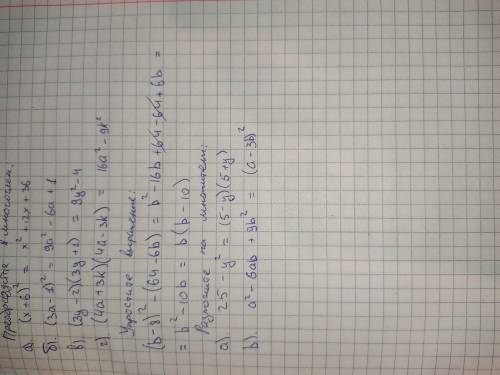 Преобразуйте в многочлен:
а) (x+6)² = x² + 12x + 36
б). (3a - 1)² = 9a² - 6a + 1
в). (3y - 2)(3y + 2) = 9y² - 4
г) (4a + 3k)(4a - 3k) = 16a² - 9k²
Упростите выражение:
(b - 8)² - (64 - 6b) = b² - 16b + 64 - 64 + 6b =
= b² - 10b = b(b - 10)
Разложите на множители:
а) 25 - y² = (5 - y)(5 + y)
b). a² - 6ab + 9b² = (a - 3b)²